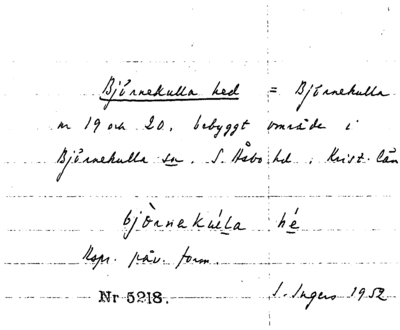 Björnekulla hed = Björnekulla
nr 19 och 20, bebyggt område i
Björnekulla sn. S. Åsbo hd, Krist. län
björnekúlla hé
Uspr. påv. form.
Nr 5218. I. Ingers 1952